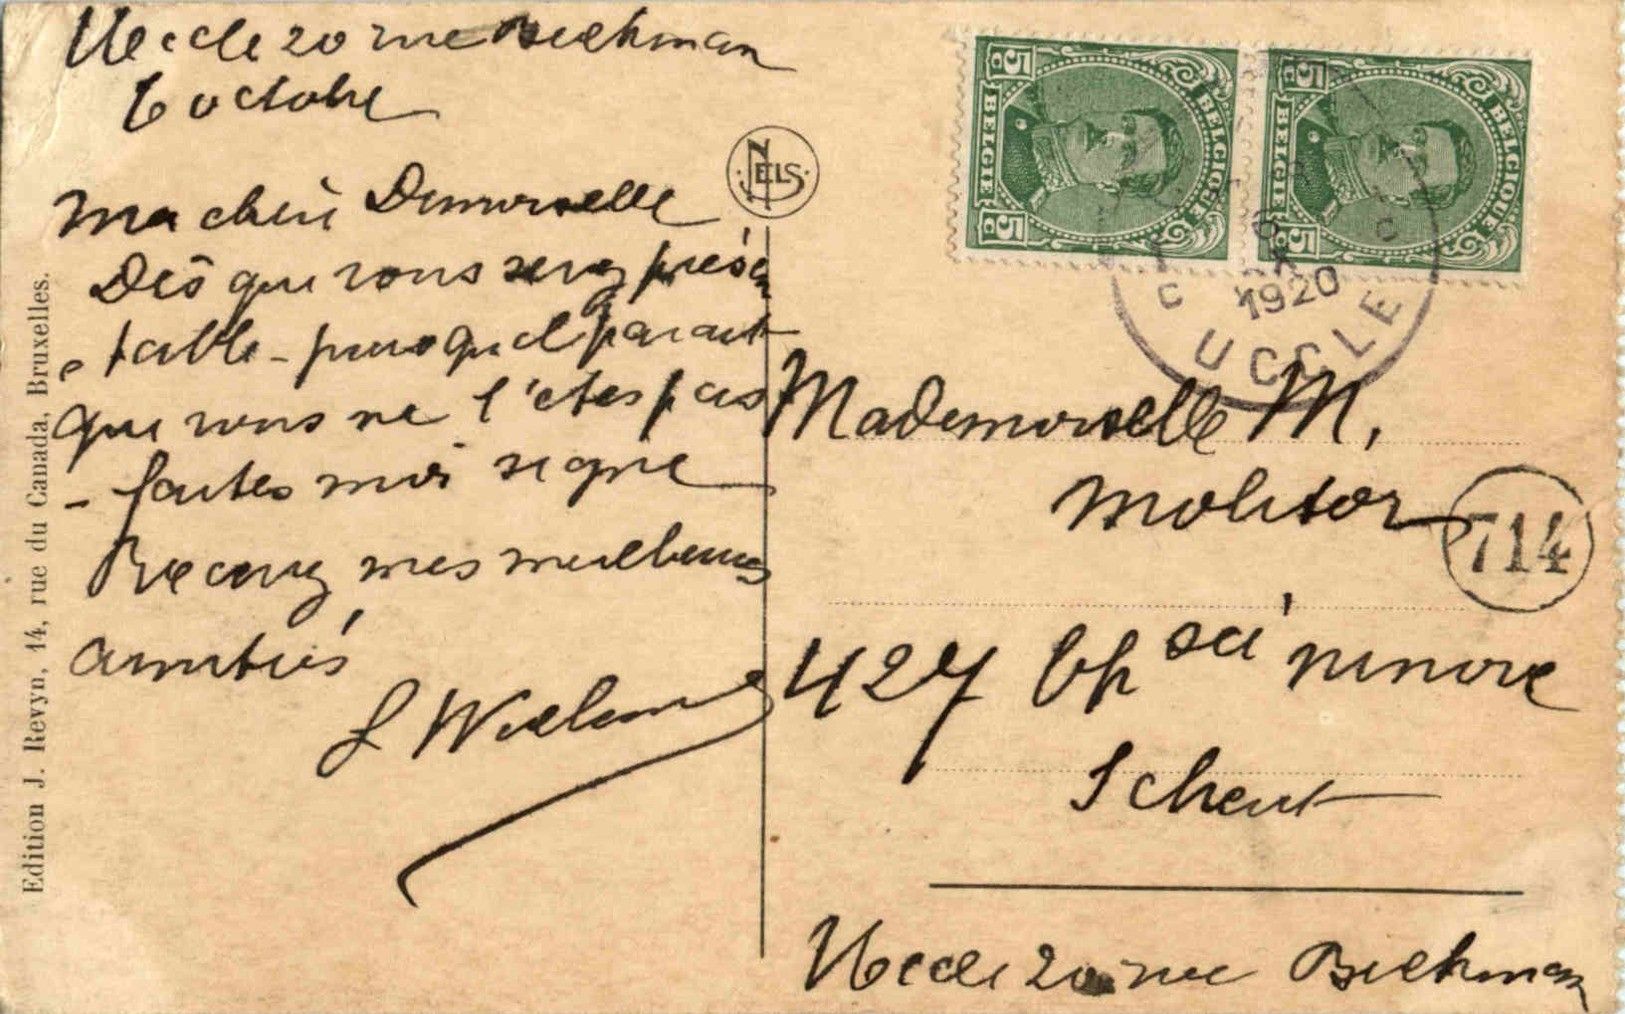 Uccle 20 rue Beeckman
6 octobre
Ma chère Demoiselle
Dès que vous serez présen
table - puisqu'il parait
que vous ne l'êtes pas
- faites moi signe
Recevez mes meilleures
amitiés
NELS
Edition J. Revyn, 14, rue du Canada, Bruxelles.
5 c
BELGIE
BELGIQUE
5 c
5 c
BELGIE
BELGIQUE
5 c
1920
UCCLE
Mademoiselle M.
Molitor
714
427 Ch
Ninove
Scheut
Uccle 20 rue Beeckman